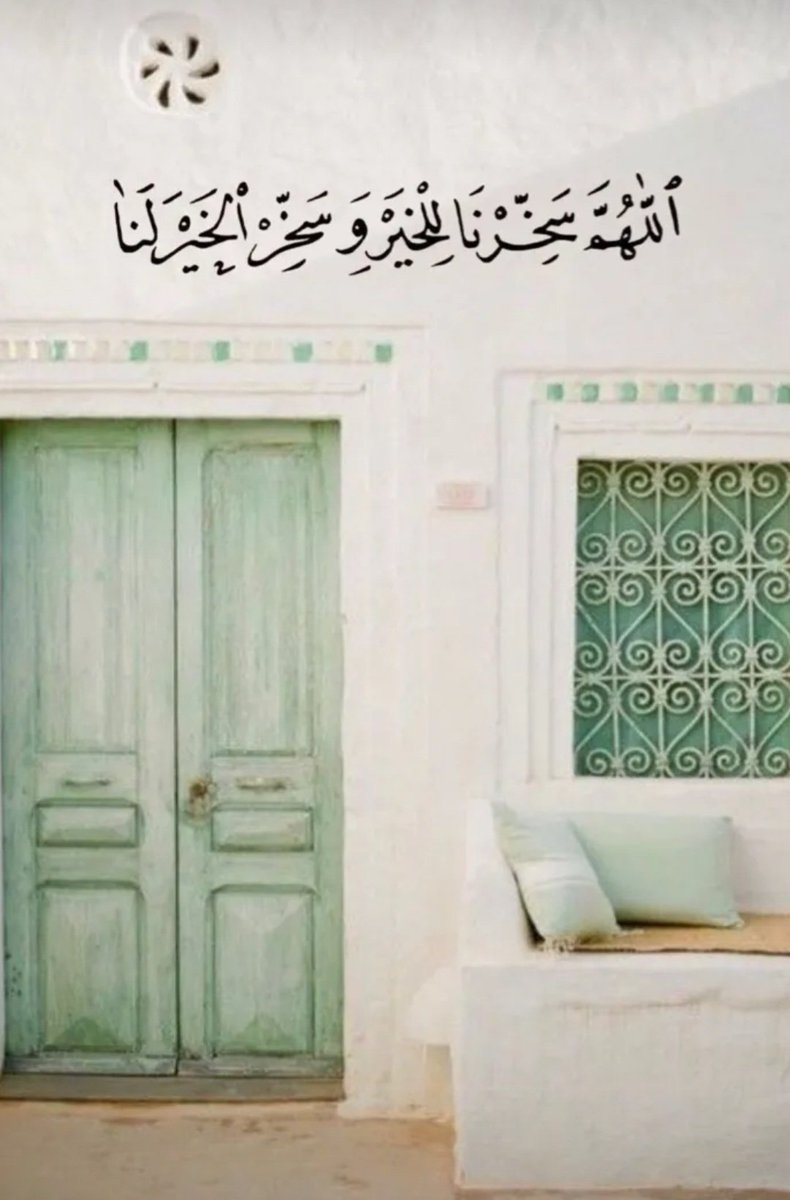 ٱللّٰهُمَّ سَخِّرْنَا لِلْخَيْرِ وَ سَخِّرْ الْخَيْرَ لَنَا